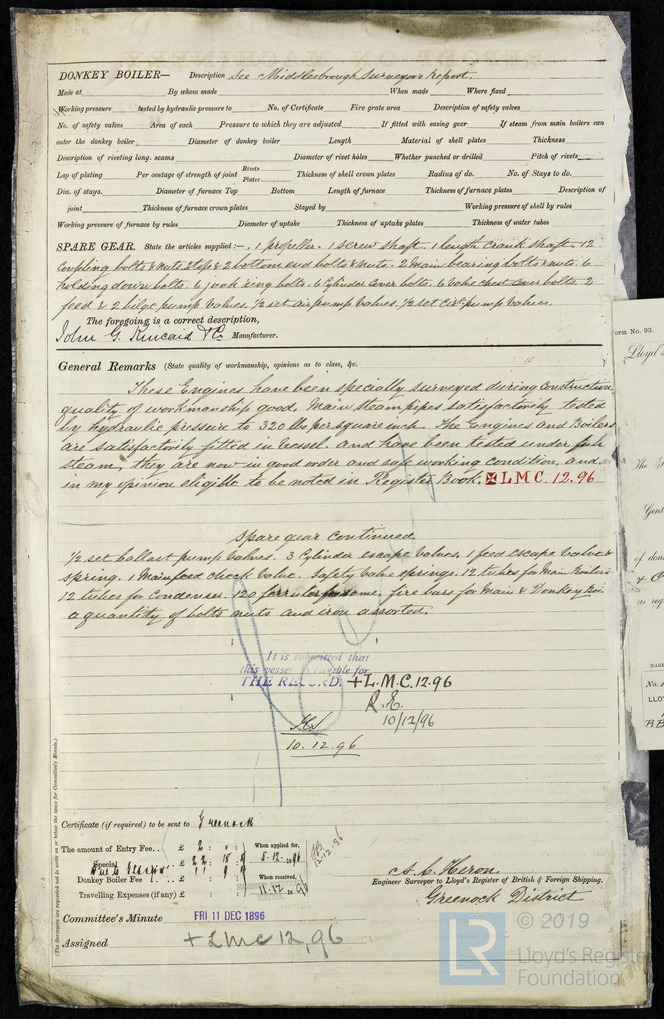 DONKEY BOILER— Description See Middlesbrough Surveyors Report
Made at By whom made When made Where fixed
Working pressure tested by hydraulic pressure to No. of Certificate Fire grate area Description of safety valves
No. of safety valves Area of each Pressure to which they are adjusted If fitted with easing gear If steam from main boilers can
enter the donkey boiler Diameter of donkey boiler Length Material of shell plates Thickness
Description of riveting long. seams Diameter of rivet holes Whether punched or drilled Pitch of rivets
Lap of plating Per centage of strength of joint Rivets Plates Thickness of shell crown plates Radius of do. No. of Stays to do.
Dia. of stays. Diameter of furnace Top Bottom Length of furnace Thickness of furnace plates Description of
joint Thickness of furnace crown plates Stayed by Working pressure of shell by rules
Working pressure of furnace by rules Diameter of uptake Thickness of uptake plates Thickness of water tubes
SPARE GEAR. State the articles supplied:— 1 propeller. 1 screw shaft. 1 length Crank Shaft. 12
Coupling bolts & nuts. 2 top & 2 bottom end bolts & nuts. 2 Main bearing bolts & nuts. 6
holding down bolts. 6 junk ring bolts. 6 Cylinder Cover bolts. 6 valve chest cover bolts. 2
feed & 2 bilge pump valves. ½ set air pump valves. ½ set Circ pump valves.
The foregoing is a correct description,
John G. Kincaid & Co. Manufacturer.
General Remarks (State quality of workmanship, opinions as to class, &c.
These Engines have been specially surveyed during construction
quality of workmanship good. Main steam pipes satisfactorily tested
by hydraulic pressure to 320 lbs per square inch. The Engines and Boilers
are satisfactorily fitted in vessel. and have been tested under full
steam, they are now in good order and safe working condition, and
in my opinion eligible to be noted in Register Book. ✠ L M C. 12.96
Spare gear continued
½ set ballast pump valves. 3 Cylinder escape valves. 1 feed escape valve &
spring. 1 Main feed check valve. Safety valve springs. 12 tubes for Main Boilers
12 tubes for Condenser. 120 ferrules for same. fire bars for Main & Donkey Boi
a quantity of bolts nuts and iron assorted.
It is submitted that
this vessel is eligible for
THE RECORD. + L.M.C. 12.96
10/12/96
10.12.96
(The Surveyors are requested not to write on or below the space for Committee's Minute.)
Certificate (if required) to be sent to Greenock
The amount of Entry Fee.. £ 2 : " : When applied for,
Special £ 22 : 18 : 9 5.12.1896
Donkey Boiler Fee £ When received,
Travelling Expenses (if any) £ 11.12.1896
A. C. Heron.
Engineer Surveyor to Lloyd's Register of British & Foreign Shipping.
Greenock District
Committee's Minute FRI 11 DEC 1896
Assigned + L M C 12,96
orm No. 93.
Lloyd's
© 2019
LR Lloyd's Register
Foundation